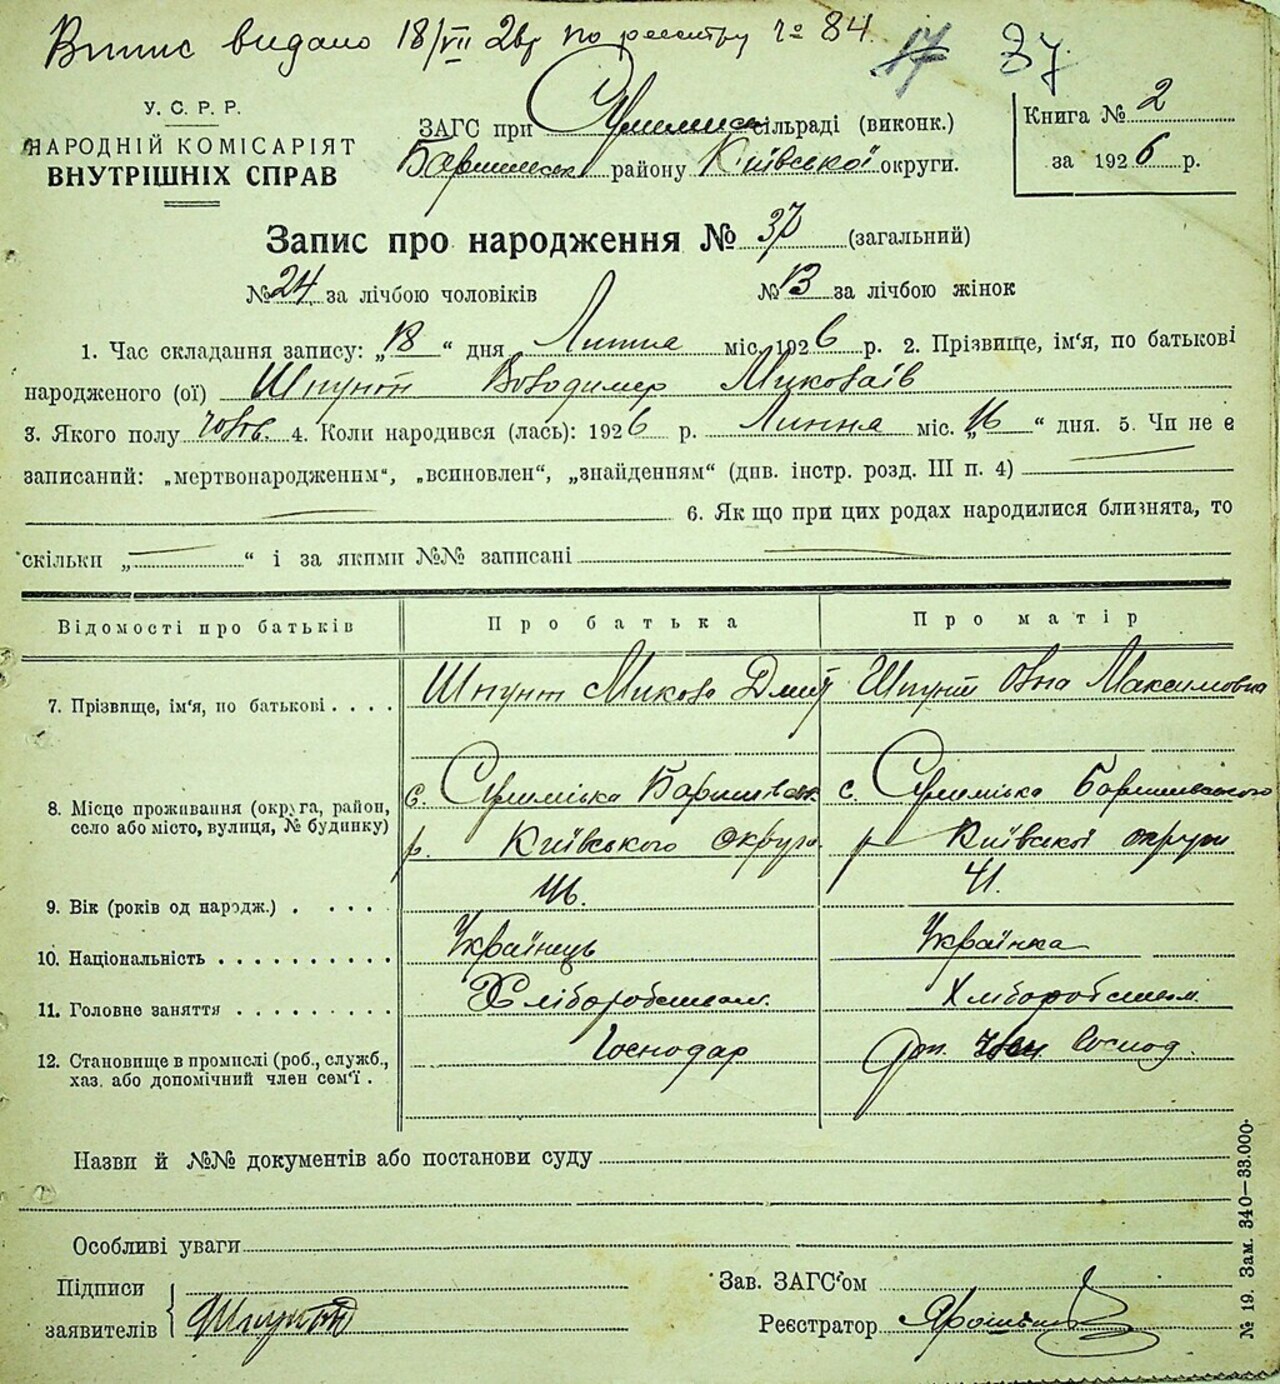 Випис видано 18/VII 26р по реєстру № 84. 17 37.
У. С. Р. Р.
НАРОДНІЙ КОМІСАРІЯТ
ВНУТРІШНІХ СПРАВ
ЗАГС при сільраді (виконк.)
району Київської округи.
Книга № 2
за 1926 р.
Запис про народження № 37 (загальний)
№ 24 за лічбою чоловіків № 13 за лічбою жінок
1. Час складання запису: „18“ дня Липня міс. 1926 р. 2. Прізвище, ім'я, по батькові
народженого (ої) Шпунт Володимер Миколаїв
3. Якого полу чолов. 4. Коли народився (лась): 1926 р. Липня міс. „16“ дня. 5. Чи не є
записаний: „мертвонародженим“, „всиновлен“, „знайденням“ (див. інстр. розд. III п. 4)
6. Як що при цих родах народилися близнята, то
скільки „ “ і за якими №№ записані
Відомості про батьків Про батька Про матір
7. Прізвище, ім'я, по батькові . . . . Шпунт Микола Дмит Шпунт Овна Максимовна
8. Місце проживання (округа, район, село або місто, вулиця, № будинку) с. Селимівка с. Селимівка
р. Київського округи р Київскої округи
9. Вік (років од народж.) . . . . 46. 41.
10. Національність . . . . . . . . . . Українець Українка
11. Головне заняття . . . . . . . . . Хліборобством. Хліборобством.
12. Становище в промислі (роб., служб., хаз. або допомічний член сем'ї . Господар Доп. член Господ.
Назви й №№ документів або постанови суду
Особливі уваги
Підписи
заявителів Шпунт
Зав. ЗАГС'ом
Реєстратор
№ 19. Зам. 340—33.000.